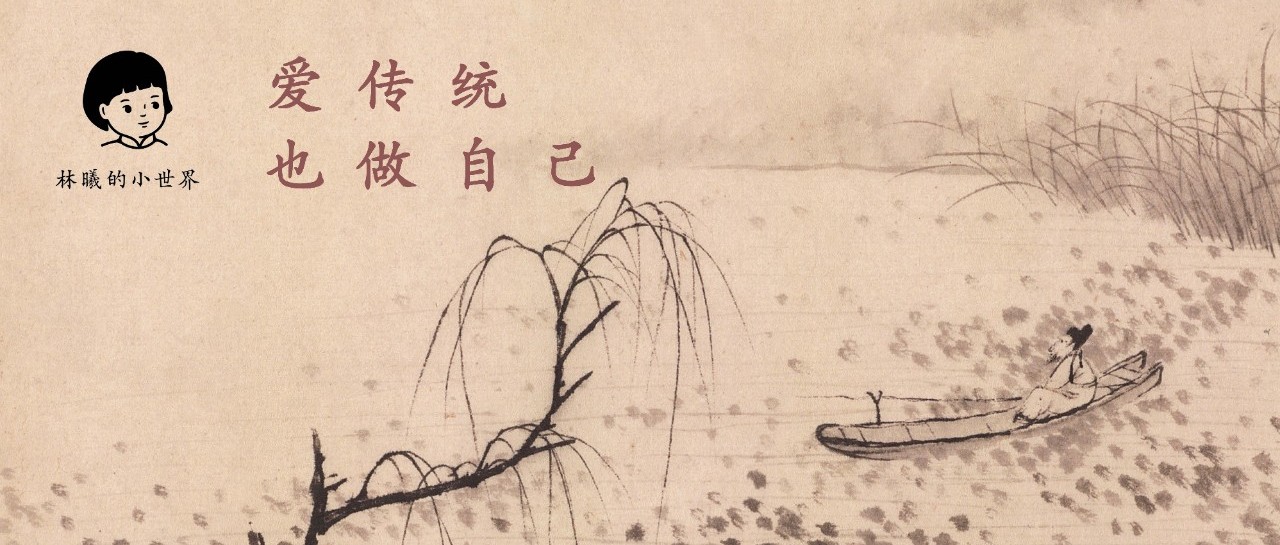 爱传统
也做自己
林曦的小世界